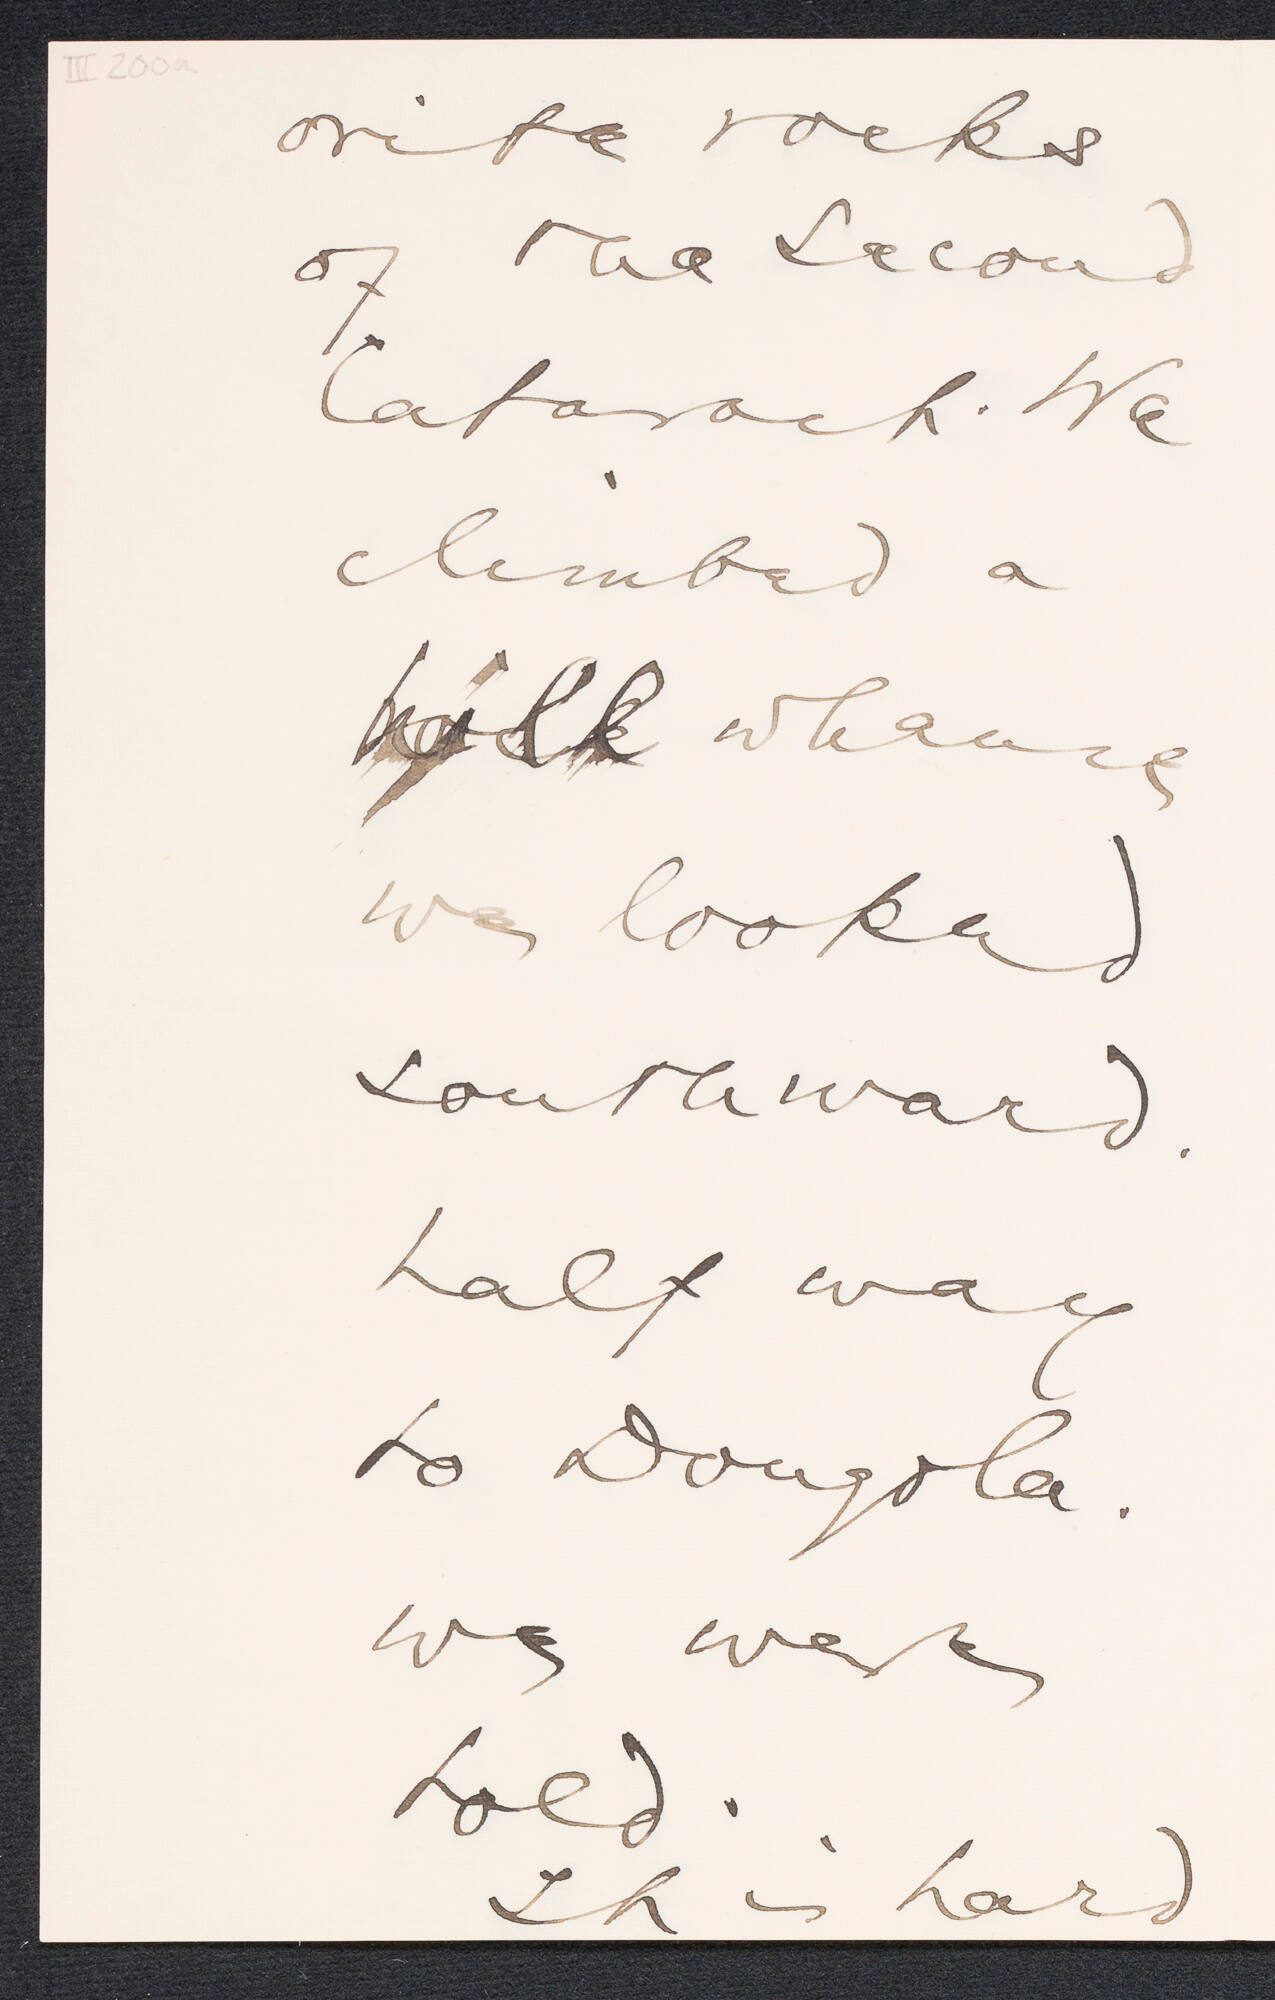 III 200a
orite rocks
of the Second
Cataract. We
climbed a
hill whence
we looked
southward.
half way
to Dongola.
we were
told.
It is hard